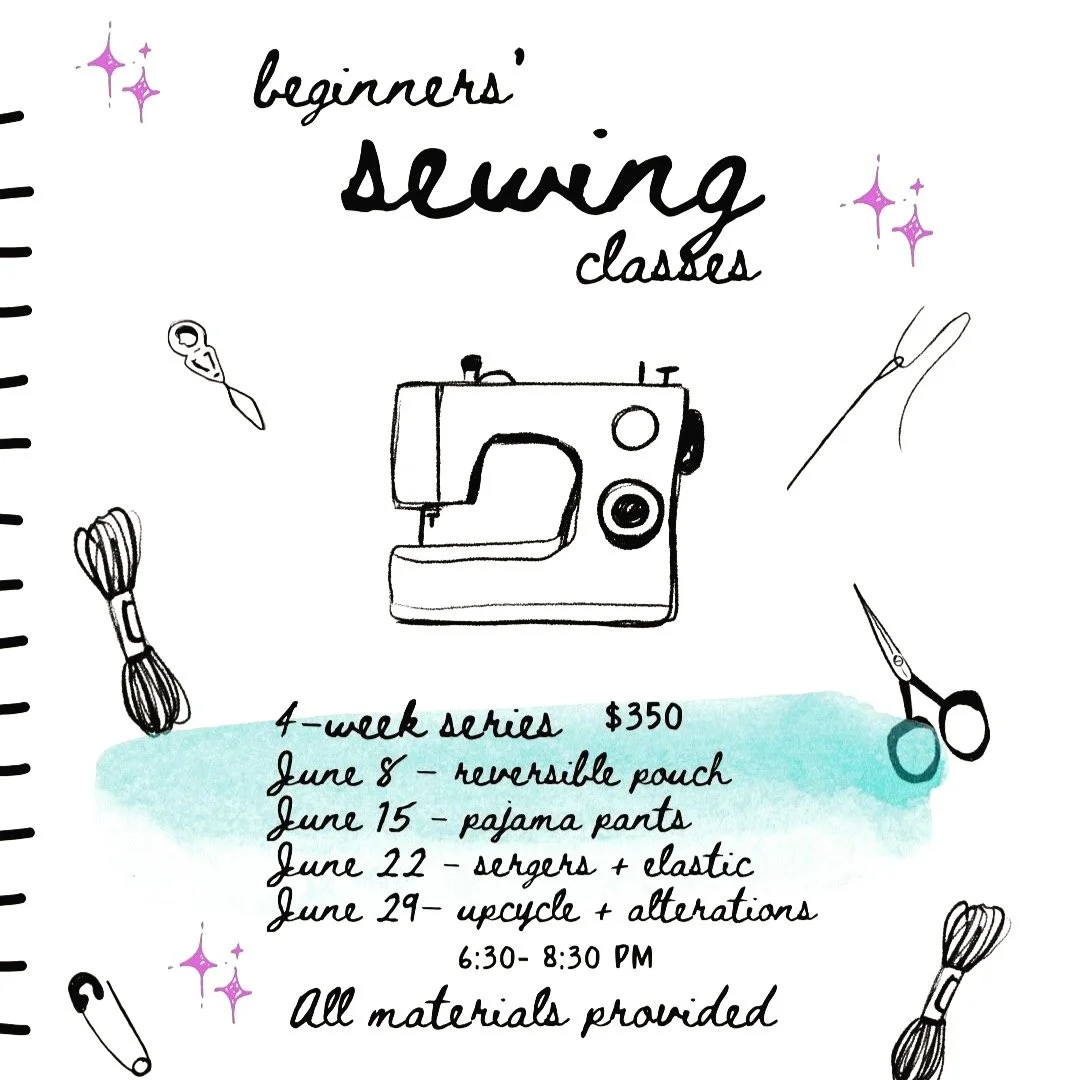 beginners'
sewing
classes
4-week series $350
June 8 - reversible pouch
June 15 - pajama pants
June 22 - sergers + elastic
June 29- upcycle + alterations
6:30- 8:30 PM
All materials provided